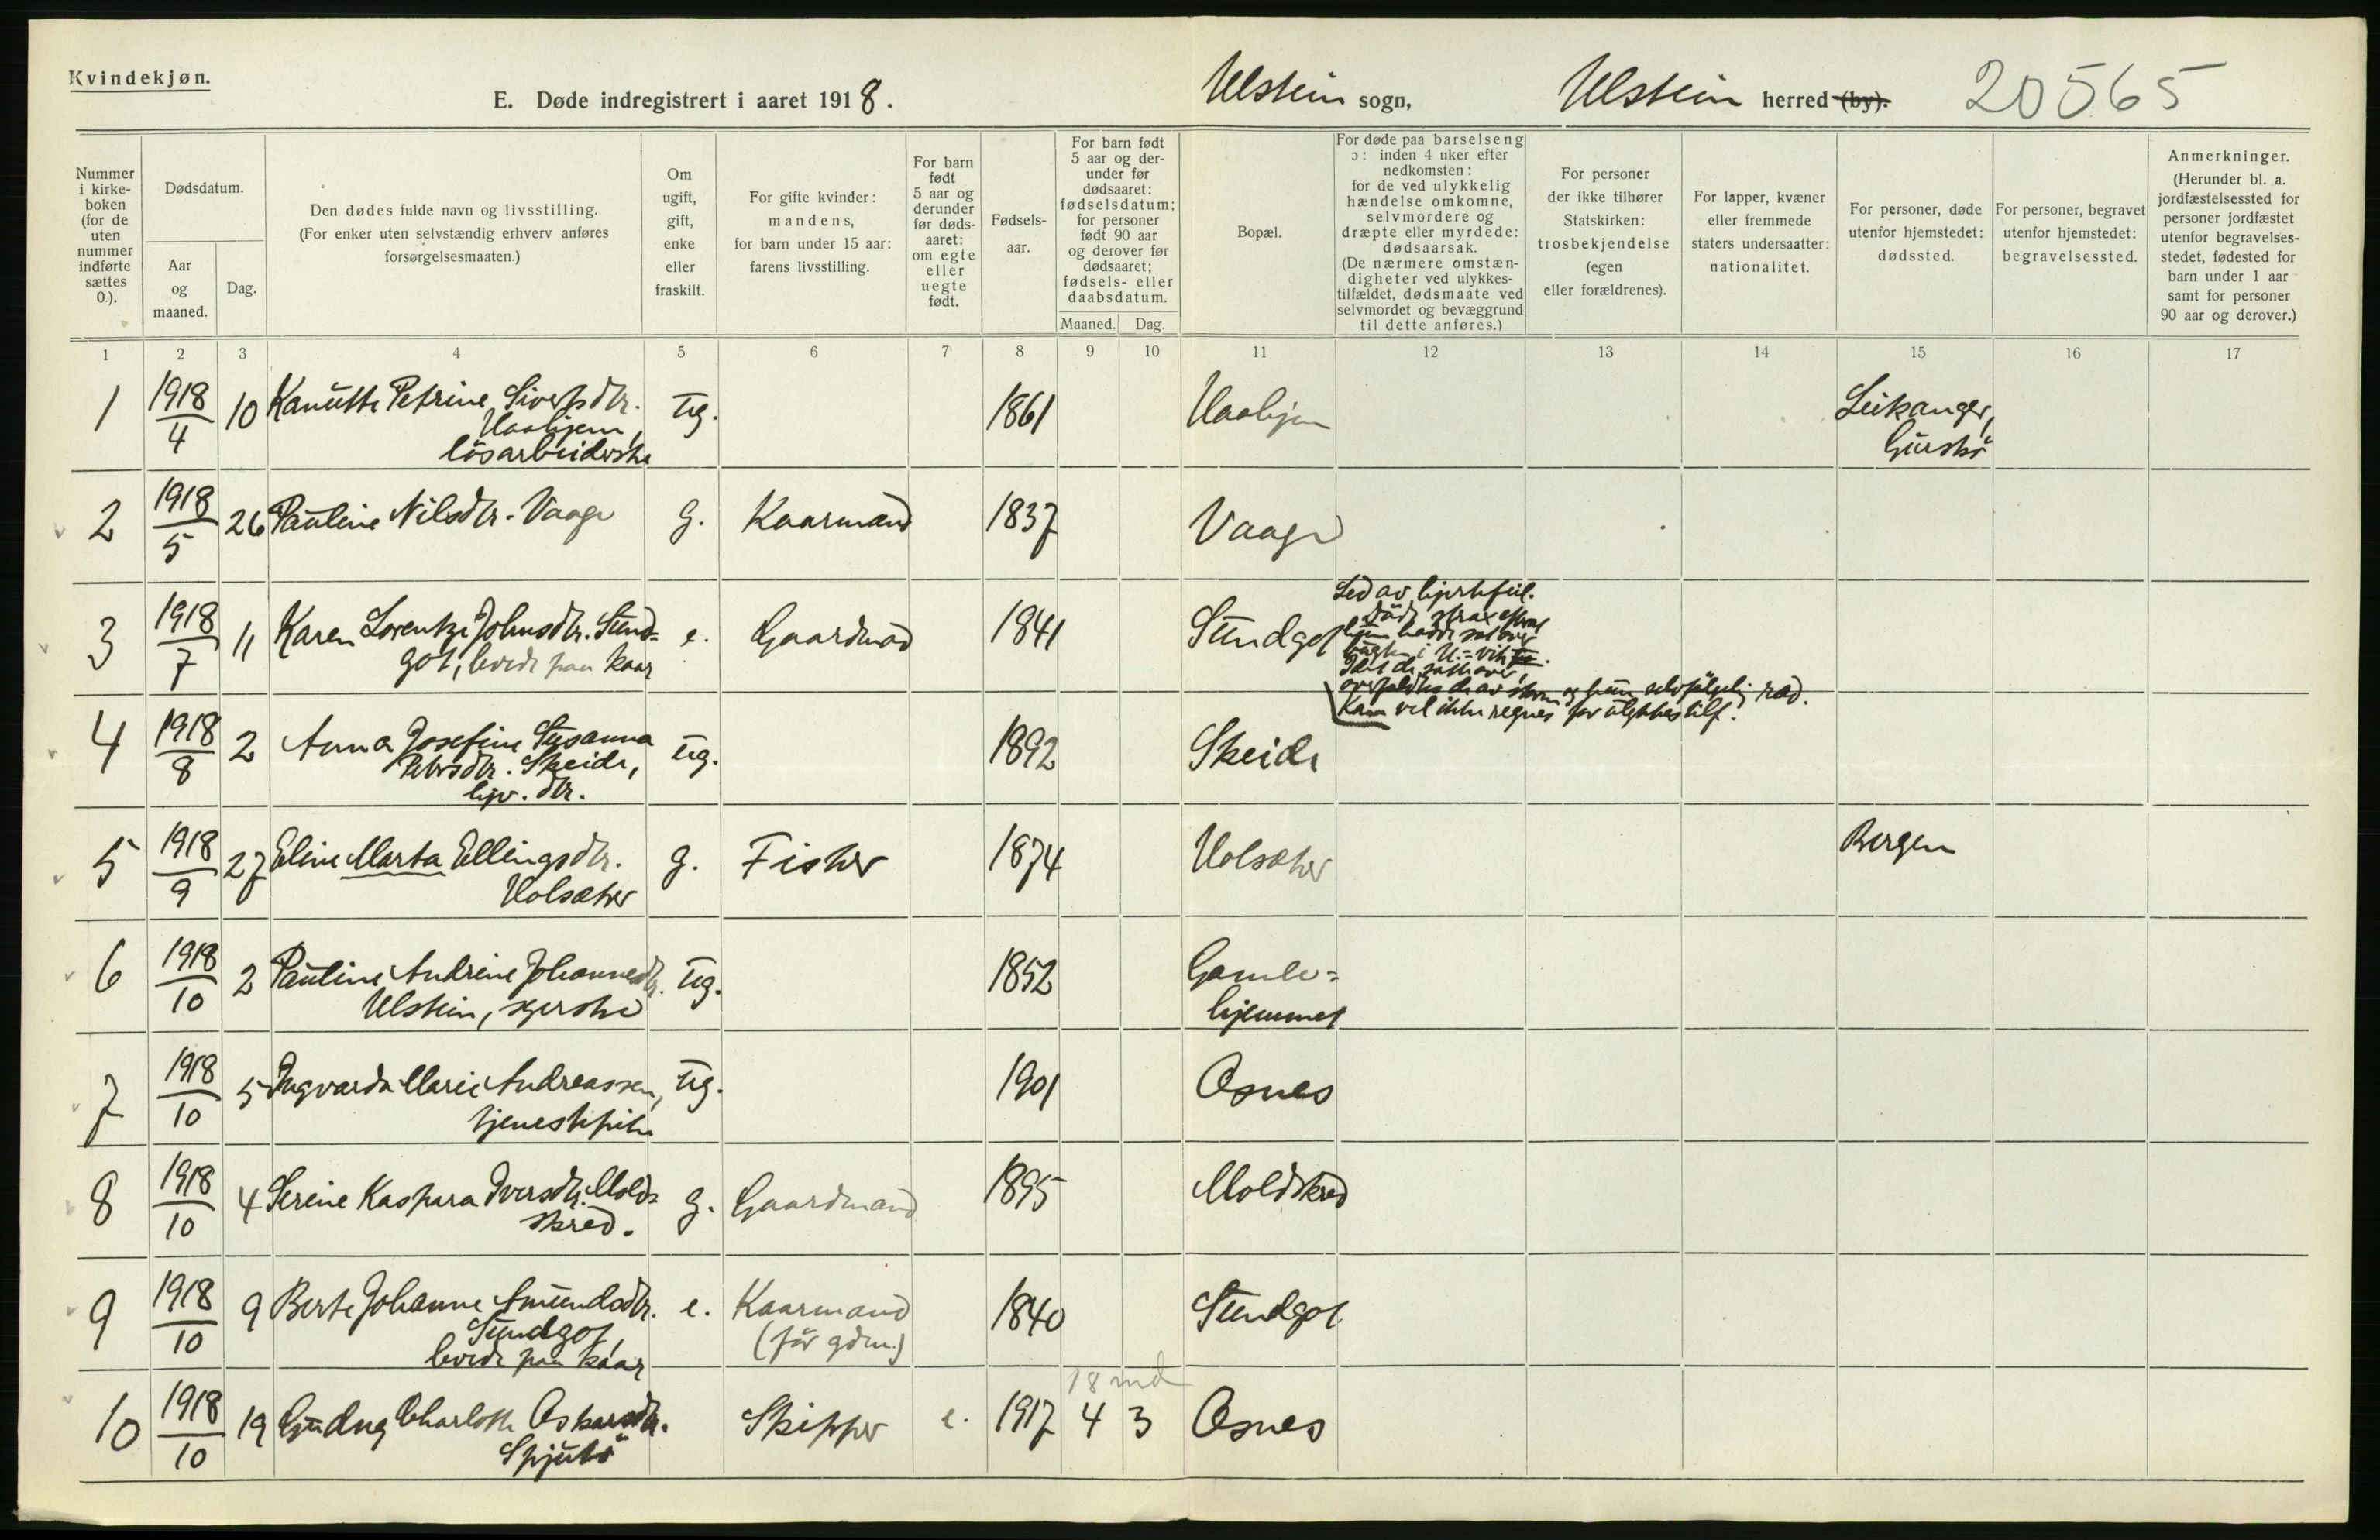 Kvindekjøn.
E. Døde indregistrert i aaret 1918.
Ulstein sogn, Ulstein herred (by). 20565
Nummer i kirke- boken (for de uten nummer indførte sættes 0.).
Dødsdatum.
Aar og maaned.
Dag.
Den dødes fulde navn og livsstilling. (For enker uten selvstændig erhverv anføres forsørgelsesmaaten.)
Om ugift, gift, enke eller fraskilt.
For gifte kvinder: mandens, for barn under 15 aar: farens livsstilling.
For barn født 5 aar og derunder før døds- aaret: om egte eller uegte født.
Fødsels- aar.
For barn født 5 aar og der- under før dødsaaret: fødselsdatum; for personer født 90 aar og derover før dødsaaret; fødsels- eller daabsdatum.
Maaned. Dag.
Bopæl.
For døde paa barselseng ɔ: inden 4 uker efter nedkomsten: for de ved ulykkelig hændelse omkomne, selvmordere og dræpte eller myrdede: dødsaarsak. (De nærmere omstæn- digheter ved ulykkes- tilfældet, dødsmaate ved selvmordet og bevæggrund til dette anføres.)
For personer der ikke tilhører Statskirken: trosbekjendelse (egen eller forældrenes).
For lapper, kvæner eller fremmede staters undersaatter: nationalitet.
For personer, døde utenfor hjemstedet: dødssted.
For personer, begravet utenfor hjemstedet: begravelsessted.
Anmerkninger. (Herunder bl. a. jordfæstelsessted for personer jordfæstet utenfor begravelses- stedet, fødested for barn under 1 aar samt for personer 90 aar og derover.)
1 2 3 4 5 6 7 8 9 10 11 12 13 14 15 16 17
1 1918/4 10 Kanutte Petrine Sivertsdtr. ug. 1861 Haahjem Leikanger,
Haahjem, Gurskö
lösarbeiderske
2 1918/5 26 Pauline Nilsdtr. Vaage g. Kaarmand 1837 Vaage
3 1918/7 11 Karen Lorentze Johnsdtr. Sund= e. Gaardmad 1841 Sundgot
got, levede paa kaar
Led av hjertefeil.
Döde strax efterat
hun hadde sat over
i U.=vik
Idet de satte over,
de av og hun selvfölgelig ræd.
Kan vel ikke regnes for ulykkestilf.
4 1918/8 2 Anna Josefine Susanna ug. 1892 Skeide
Petersdtr. Skeide,
hjv. dtr.
5 1918/9 27 Eline Marta Ellingsdtr. g. Fisker 1874 Holsæter Bergen
Holsæter
6 1918/10 2 Pauline Andrine Johannesdtr. ug. 1852 Gamle=
Ulstein, syerske hjemmet
7 1918/10 5 Ingvarda Marie Andreassen, ug. 1901 Osnes
tjenestepike
8 1918/10 4 Serine Kaspara Iversdtr. Mold= g. Gaardmand 1895 Moldskred
skred.
9 1918/10 9 Berte Johanne Amundsdtr. e. Kaarmand 1840 Sundgot
Sundgot, (för gdm.)
levede paa kaar
18 md
10 1918/10 19 Gudny Charlotte Oskarsdtr. Skipper e. 1917 4 3 Osnes
Spjutö